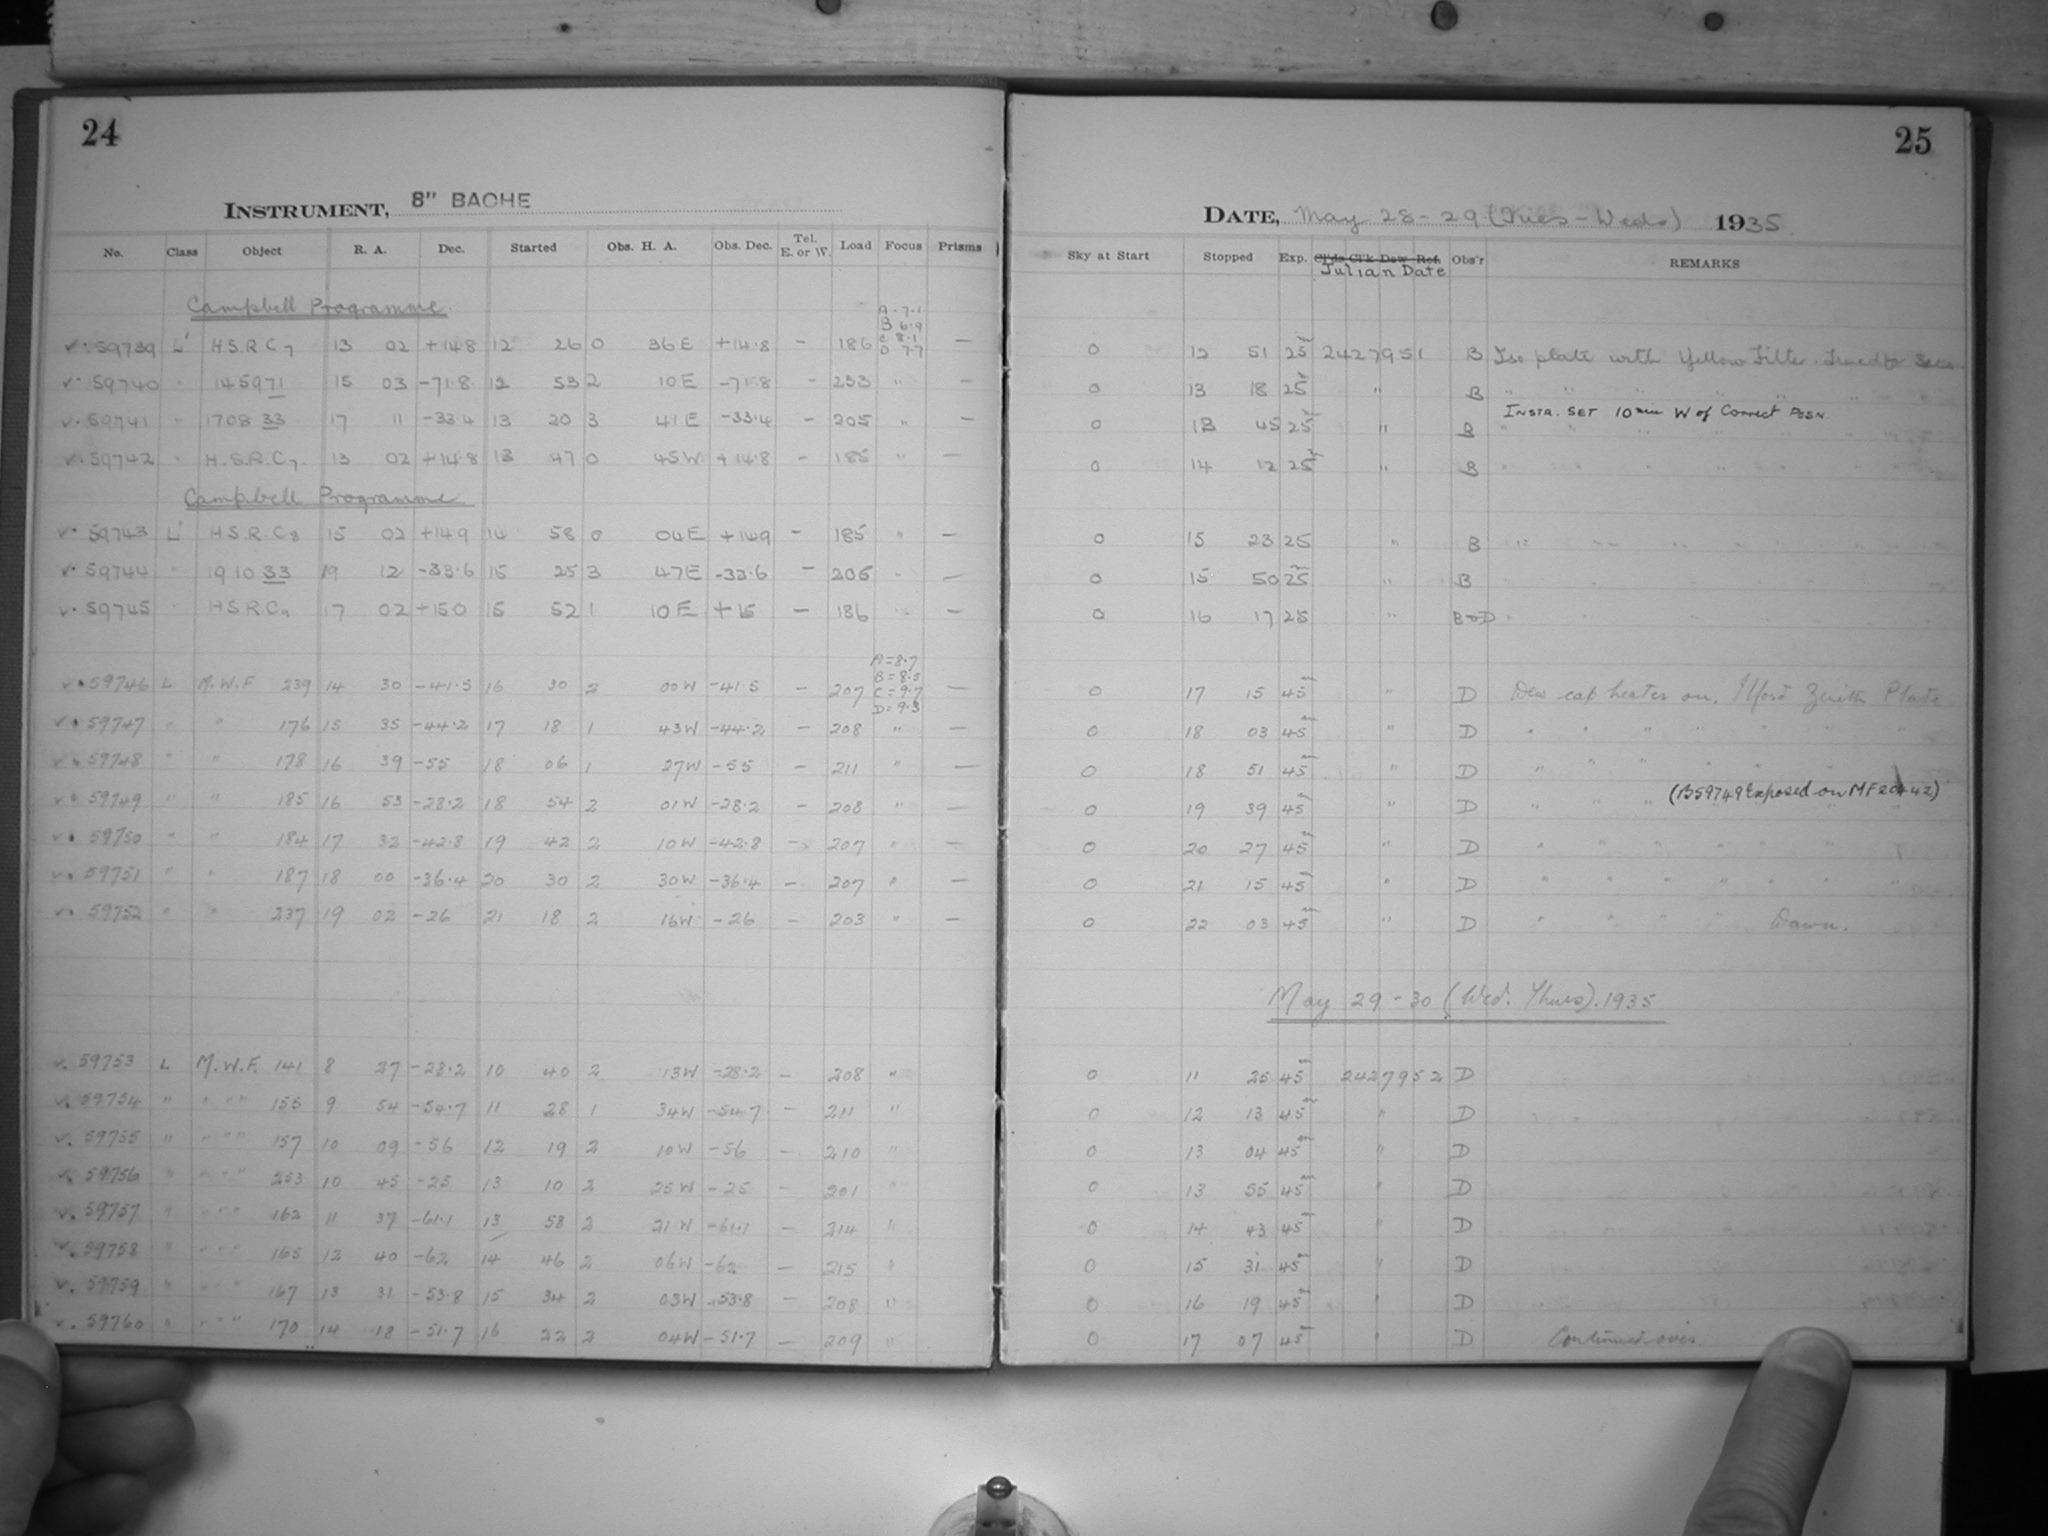 24
INSTRUMENT, 8" BACHE
No. Class Object R. A. Dec. Started Obs. H. A. Obs. Dec. Tel. E. or W. Load Focus Prisms
Campbell Programme
A - 7.1
B 6.9
C 8.1
D 7.7
59739 L' H.S.R.C7 13 02 +14.8 12 26 0 36 E +14.8 - 186 -
59740 " 145971 15 03 -71.8 12 53 2 10 E -71.8 - 233 " -
59741 " 170833 17 11 -33.4 13 20 3 41 E -33.4 - 205 " -
59742 " H.S.R.C7 13 02 +14.8 13 47 0 45 W +14.8 - 185 " -
Campbell Programme
59743 L' H.S.R.C8 15 02 +14.9 14 58 0 04 E +14.9 - 185 " -
59744 " 191033 19 12 -33.6 15 25 3 47 E -33.6 - 206 " -
59745 " H.S.R.C9 17 02 +15.0 15 52 1 10 E +15 - 186 " -
A = 8.7
B = 8.5
C = 9.7
D = 9.3
59746 L M.W.F 239 14 30 -41.5 16 30 2 00 W -41.5 - 207 -
59747 " " 176 15 35 -44.2 17 18 1 43 W -44.2 - 208 " -
59748 " " 178 16 39 -55 18 06 1 27 W -55 - 211 " -
59749 " " 185 16 53 -28.2 18 54 2 01 W -28.2 - 208 " -
59750 " " 184 17 32 -42.8 19 42 2 10 W -42.8 - 207 " -
59751 " " 187 18 00 -36.4 20 30 2 30 W -36.4 - 207 " -
59752 " " 237 19 02 -26 21 18 2 16 W -26 - 203 " -
59753 L M.W.F. 141 8 27 -28.2 10 40 2 13 W -28.2 - 208 "
59754 " " " " 155 9 54 -54.7 11 28 1 34 W -54.7 - 211 "
59755 " " " " 157 10 09 -56 12 19 2 10 W -56 - 210 "
59756 " " " " 253 10 45 -25 13 10 2 25 W -25 - 201 "
59757 " " " " 162 11 37 -61.1 13 58 2 21 W -61.1 - 214 "
59758 " " " " 165 12 40 -62 14 46 2 06 W -62 - 215 "
59759 " " " " 167 13 31 -53.8 15 34 2 03 W -53.8 - 208 "
59760 " " " " 170 14 18 -51.7 16 22 2 04 W -51.7 - 209 "
25
DATE, May 28-29 (Tues - Weds) 1935.
Sky at Start Stopped Exp. Cl'ds Cl'k Dew Ref. Julian Date Obs'r REMARKS
0 12 51 25m 2427951 B Iso plate with Yellow Filter.
0 13 18 25m " B " " " "
INSTR. SET 10 min W of Correct POSN.
0 13 45 25m " B " " " "
0 14 12 25m " B " " " "
0 15 23 25 " B " " " "
0 15 50 25m " B "
0 16 17 25 " B & D "
0 17 15 45m " D Dew cap heater on. Ilford Zenith Plate
0 18 03 45m " D " " " " " "
0 18 51 45m " D " " " "
(B59749 Exposed on MF
0 19 39 45m " D " " "
0 20 27 45m " D " " " " " "
0 21 15 45m " D " " " " " "
0 22 03 45m " D " " " " Dawn.
May 29-30 (Wed. Thurs). 1935
0 11 25 45m 2427952 D
0 12 13 45m " D
0 13 04 45m " D
0 13 55 45m " D
0 14 43 45m " D
0 15 31 45m " D
0 16 19 45m " D
0 17 07 45m " D Continued over.